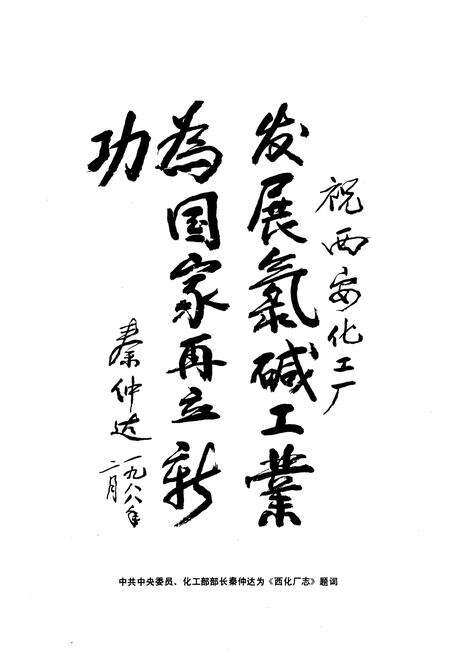 祝西安化工厂
发展氯碱工業
為国家再立新
功
秦仲达
一九八八年
二月
中共中央委员、化工部部长秦仲达为《西化厂志》题词